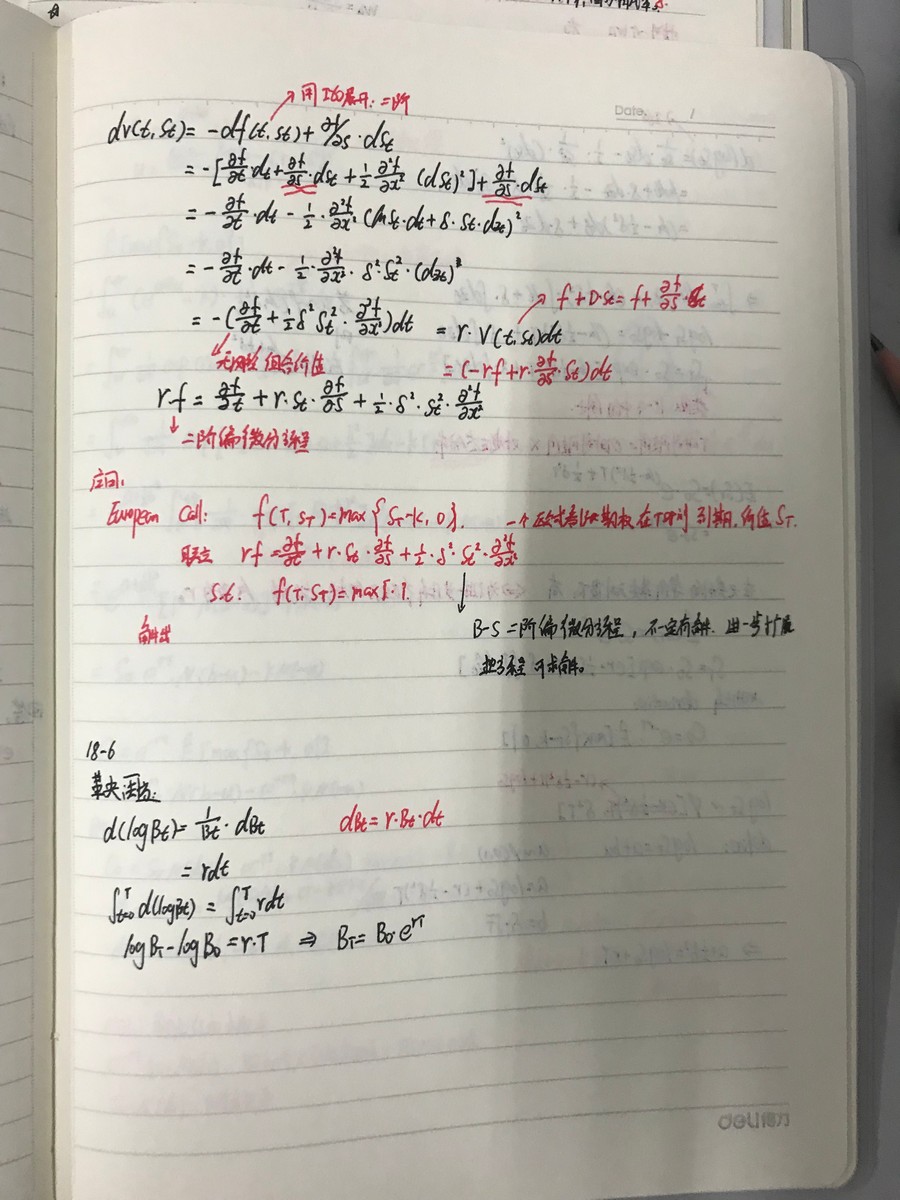 用Itô展开:二阶
Date. /
dV(t, St) = -df(t, St) + ∂f/∂s · dSt
= -[∂f/∂t · dt + ∂f/∂s · dSt + 1/2 ∂²f/∂x² (dSt)²] + ∂f/∂s · dSt
= -∂f/∂t · dt - 1/2 · ∂²f/∂x² (μSt · dt + δ · St · dzt)²
= -∂f/∂t · dt - 1/2 · ∂²f/∂x² · δ² St² · (dzt)²
f + D·St = f + ∂f/∂s · St
= -(∂f/∂t + 1/2 δ² St² · ∂²f/∂x²)dt = r · V(t, St)dt
无风险组合价值 = (-rf + r · ∂f/∂s · St)dt
r·f = ∂f/∂t + r · St · ∂f/∂s + 1/2 · δ² · St² · ∂²f/∂x²
二阶偏微分方程
应用:
European Call: f(T, ST) = max{ST-K, 0}. 一个欧式看涨期权在T时刻到期,价值ST.
联立 rf = ∂f/∂t + r · St · ∂f/∂s + 1/2 · δ² · St² · ∂²f/∂x²
s.t. f(T, ST) = max{·}.
解出
B-S 二阶偏微分方程,不一定有解. 进一步扩展
把方程可求解。
18-6
d(logBt) = 1/Bt · dBt dBt = r·Bt·dt
= rdt
∫ᵀt=0 d(logBt) = ∫ᵀt=0 rdt
logBT - logB0 = r·T ⇒ BT = B0·e^rT
deli得力